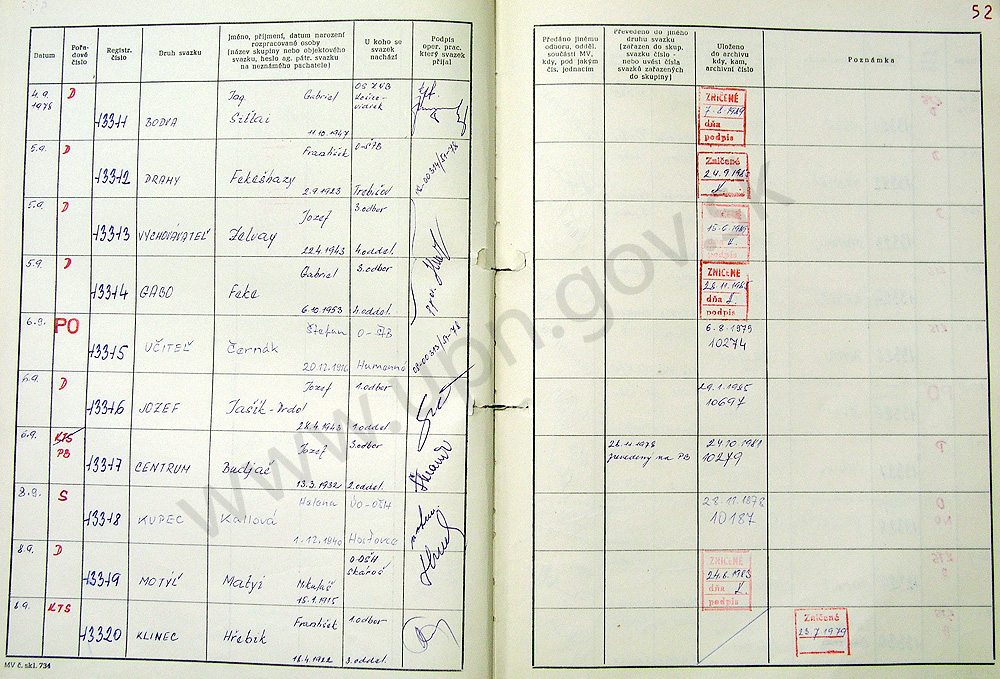 52
Datum
Pořadové číslo
Registr. číslo
Druh svazku
Jméno, příjmení, datum narození rozpracované osoby (název skupiny nebo objektového svazku, heslo ag. pátr. svazku na neznámého pachatele)
U koho se svazek nachází
Podpis oper. prac. který svazek přijal
Předáno jinému odboru, odděl. součásti MV, kdy, pod jakým čís. jednacím
Převedeno do jiného druhu svazku (zařazen do skup. svazku číslo - nebo uvést čísla svazků zařazených do skupiny)
Uloženo do archivu kdy, kam, archivní číslo
Poznámka
4.9. 1978 D 13311 BODVA Ing. Gabriel 11.10.1947
ZNIČENÉ 7.8.1989 dňa podpis
5.9. D 13312 DRAHY František 2.9.1923 Trebišov
Zničené
5.9. D 13313 VYCHOVÁVATEĽ Jozef Zelvay 22.4.1943 3.odbor 4.oddel.
15.6.1989 podpis
5.9. D 13314 GABO Gabriel Feke 6.10.1953 3.odbor 4.oddel.
ZNIČENÉ dňa podpis
6.9. PO 13315 UČITEĽ Štefan Černák 20.12.1916 Humenné
6.8.1979 10274
6.9. D 13316 JOZEF Jozef 28.4.1943 1.odbor 1.oddel.
29.1.1985 10697
6.9. KTS PB 13317 CENTRUM Jozef Budjač 13.3.1932 3.odbor 2.oddel.
28.11.1978 prevedený na PB
24.10.1981 10279
8.9. S 13318 KUPEC Helena Kallová 1.12.1940
28.11.1978 10187
8.9. D 13319 MOTÝĽ Matyi Mikuláš 15.1.1915 Skároš
ZNIČENÉ 24.6.1983 dňa podpis
8.9. KTS 13320 KLINEC František Hřebík 18.4.1922 1.odbor 3.oddel.
Zničené 23.7.1979
MV č. skl. 734
www.upn.gov.sk